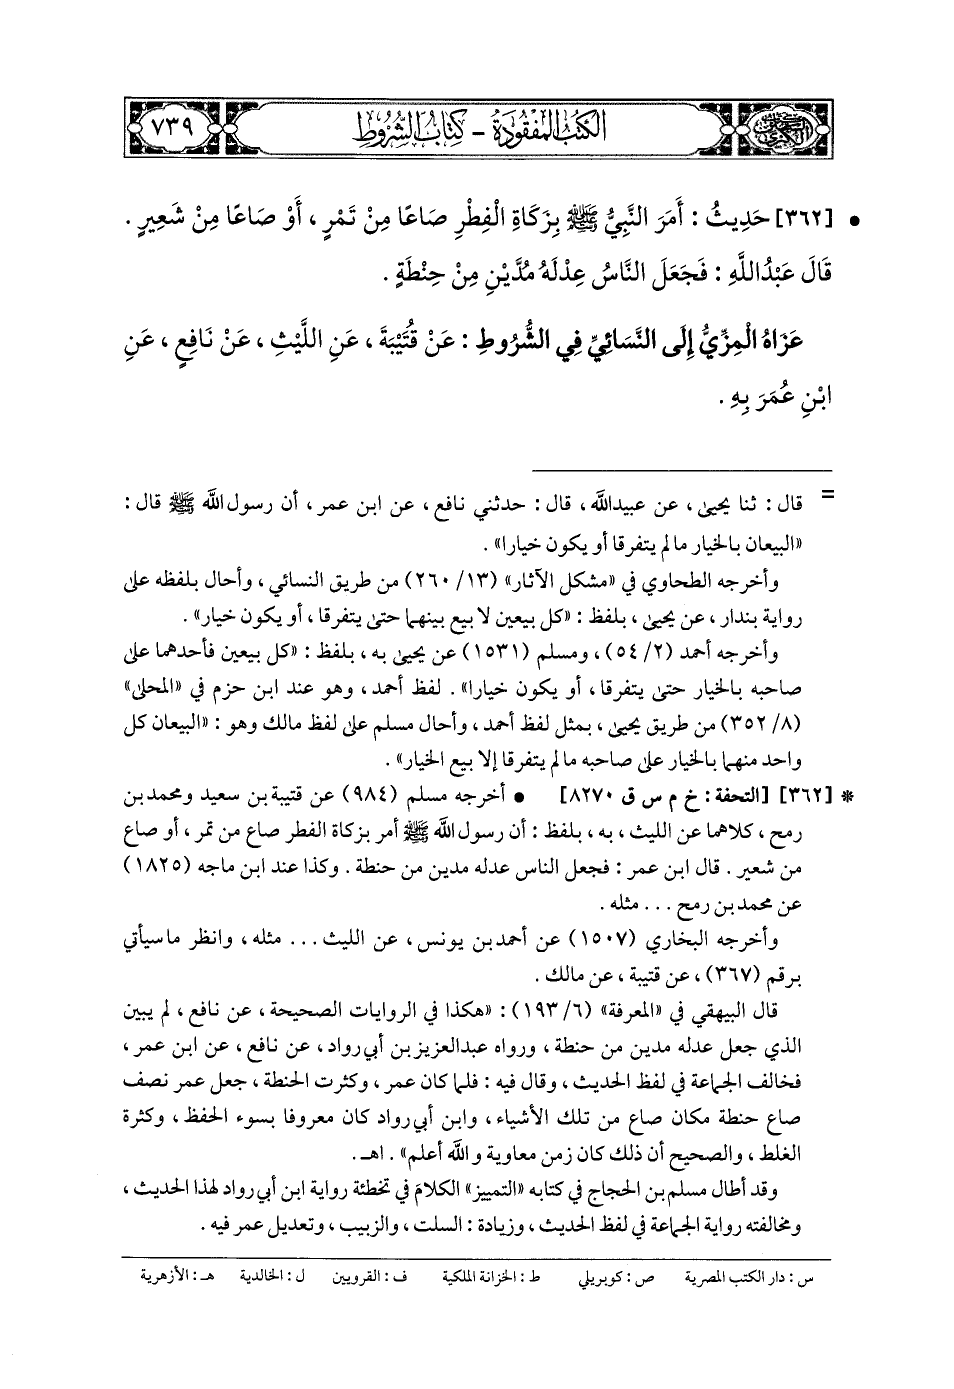 الكتب المفقودة - كتاب الشروط
٧٣٩
• [٣٦٢] حَدِيثُ : أَمَرَ النَّبِيُّ ﷺ بِزَكَاةِ الْفِطْرِ صَاعًا مِنْ تَمْرٍ ، أَوْ صَاعًا مِنْ شَعِيرٍ .
قَالَ عَبْدُاللَّهِ : فَجَعَلَ النَّاسُ عِدْلَهُ مُدَّيْنِ مِنْ حِنْطَةٍ .
عَزَاهُ الْمِزِّيُّ إِلَى النَّسَائِيِّ فِي الشُّرُوطِ : عَنْ قُتَيْبَةَ ، عَنِ اللَّيْثِ ، عَنْ نَافِعٍ ، عَنِ
ابْنِ عُمَرَ بِهِ .
= قال : ثنا يحيى ، عن عبيدالله ، قال : حدثني نافع ، عن ابن عمر ، أن رسول الله ﷺ قال :
«البيعان بالخيار ما لم يتفرقا أو يكون خيارا» .
وأخرجه الطحاوي في «مشكل الآثار» (١٣/ ٢٦٠) من طريق النسائي ، وأحال بلفظه على
رواية بندار ، عن يحيى ، بلفظ : «كل بيعين لا بيع بينهما حتى يتفرقا ، أو يكون خيار» .
وأخرجه أحمد (٢/ ٥٤) ، ومسلم (١٥٣١) عن يحيى به ، بلفظ : «كل بيعين فأحدهما على
صاحبه بالخيار حتى يتفرقا ، أو يكون خيارا» . لفظ أحمد ، وهو عند ابن حزم في «المحلى»
(٨/ ٣٥٢) من طريق يحيى ، بمثل لفظ أحمد ، وأحال مسلم على لفظ مالك وهو : «البيعان كل
واحد منهما بالخيار على صاحبه ما لم يتفرقا إلا بيع الخيار» .
* [٣٦٢] [التحفة : خ م س ق ٨٢٧٠] • أخرجه مسلم (٩٨٤) عن قتيبة بن سعيد ومحمد بن
رمح ، كلاهما عن الليث ، به ، بلفظ : أن رسول الله ﷺ أمر بزكاة الفطر صاع من تمر ، أو صاع
من شعير . قال ابن عمر : فجعل الناس عدله مدين من حنطة . وكذا عند ابن ماجه (١٨٢٥)
عن محمد بن رمح . . . مثله .
وأخرجه البخاري (١٥٠٧) عن أحمد بن يونس ، عن الليث . . . مثله ، وانظر ما سيأتي
برقم (٣٦٧) ، عن قتيبة ، عن مالك .
قال البيهقي في «المعرفة» (٦/ ١٩٣) : «هكذا في الروايات الصحيحة ، عن نافع ، لم يبين
الذي جعل عدله مدين من حنطة ، ورواه عبدالعزيز بن أبي رواد ، عن نافع ، عن ابن عمر ،
فخالف الجماعة في لفظ الحديث ، وقال فيه : فلما كان عمر ، وكثرت الحنطة ، جعل عمر نصف
صاع حنطة مكان صاع من تلك الأشياء ، وابن أبي رواد كان معروفا بسوء الحفظ ، وكثرة
الغلط ، والصحيح أن ذلك كان زمن معاوية والله أعلم» . اهـ .
وقد أطال مسلم بن الحجاج في كتابه «التمييز» الكلامَ في تخطئة رواية ابن أبي رواد لهذا الحديث ،
ومخالفته رواية الجماعة في لفظ الحديث ، وزيادة : السلت ، والزبيب ، وتعديل عمر فيه .
س : دار الكتب المصرية ص : كوبريلي ط : الخزانة الملكية ف : القرويين ل : الخالدية هـ : الأزهرية